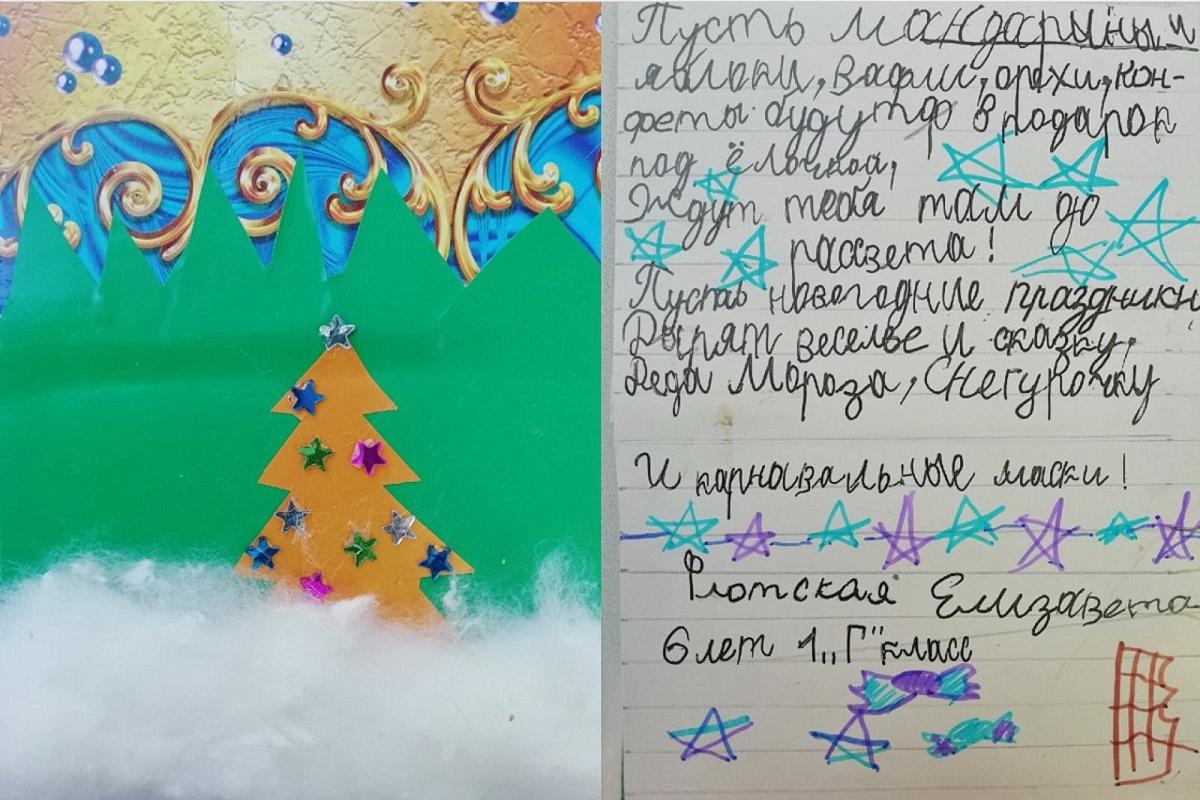 Пусть мандарыны и
яблоки, вафли, орехи, кон-
феты будут в подарок
под ёлочкой,
Ждут тебя там до
рассвета!
Пусть новогодние праздники
Дарят веселье и сказку,
Деда Мороза, Снегурочку
И карнавальные маски!
Флотская Елизавета
6 лет 1 „Г" класс